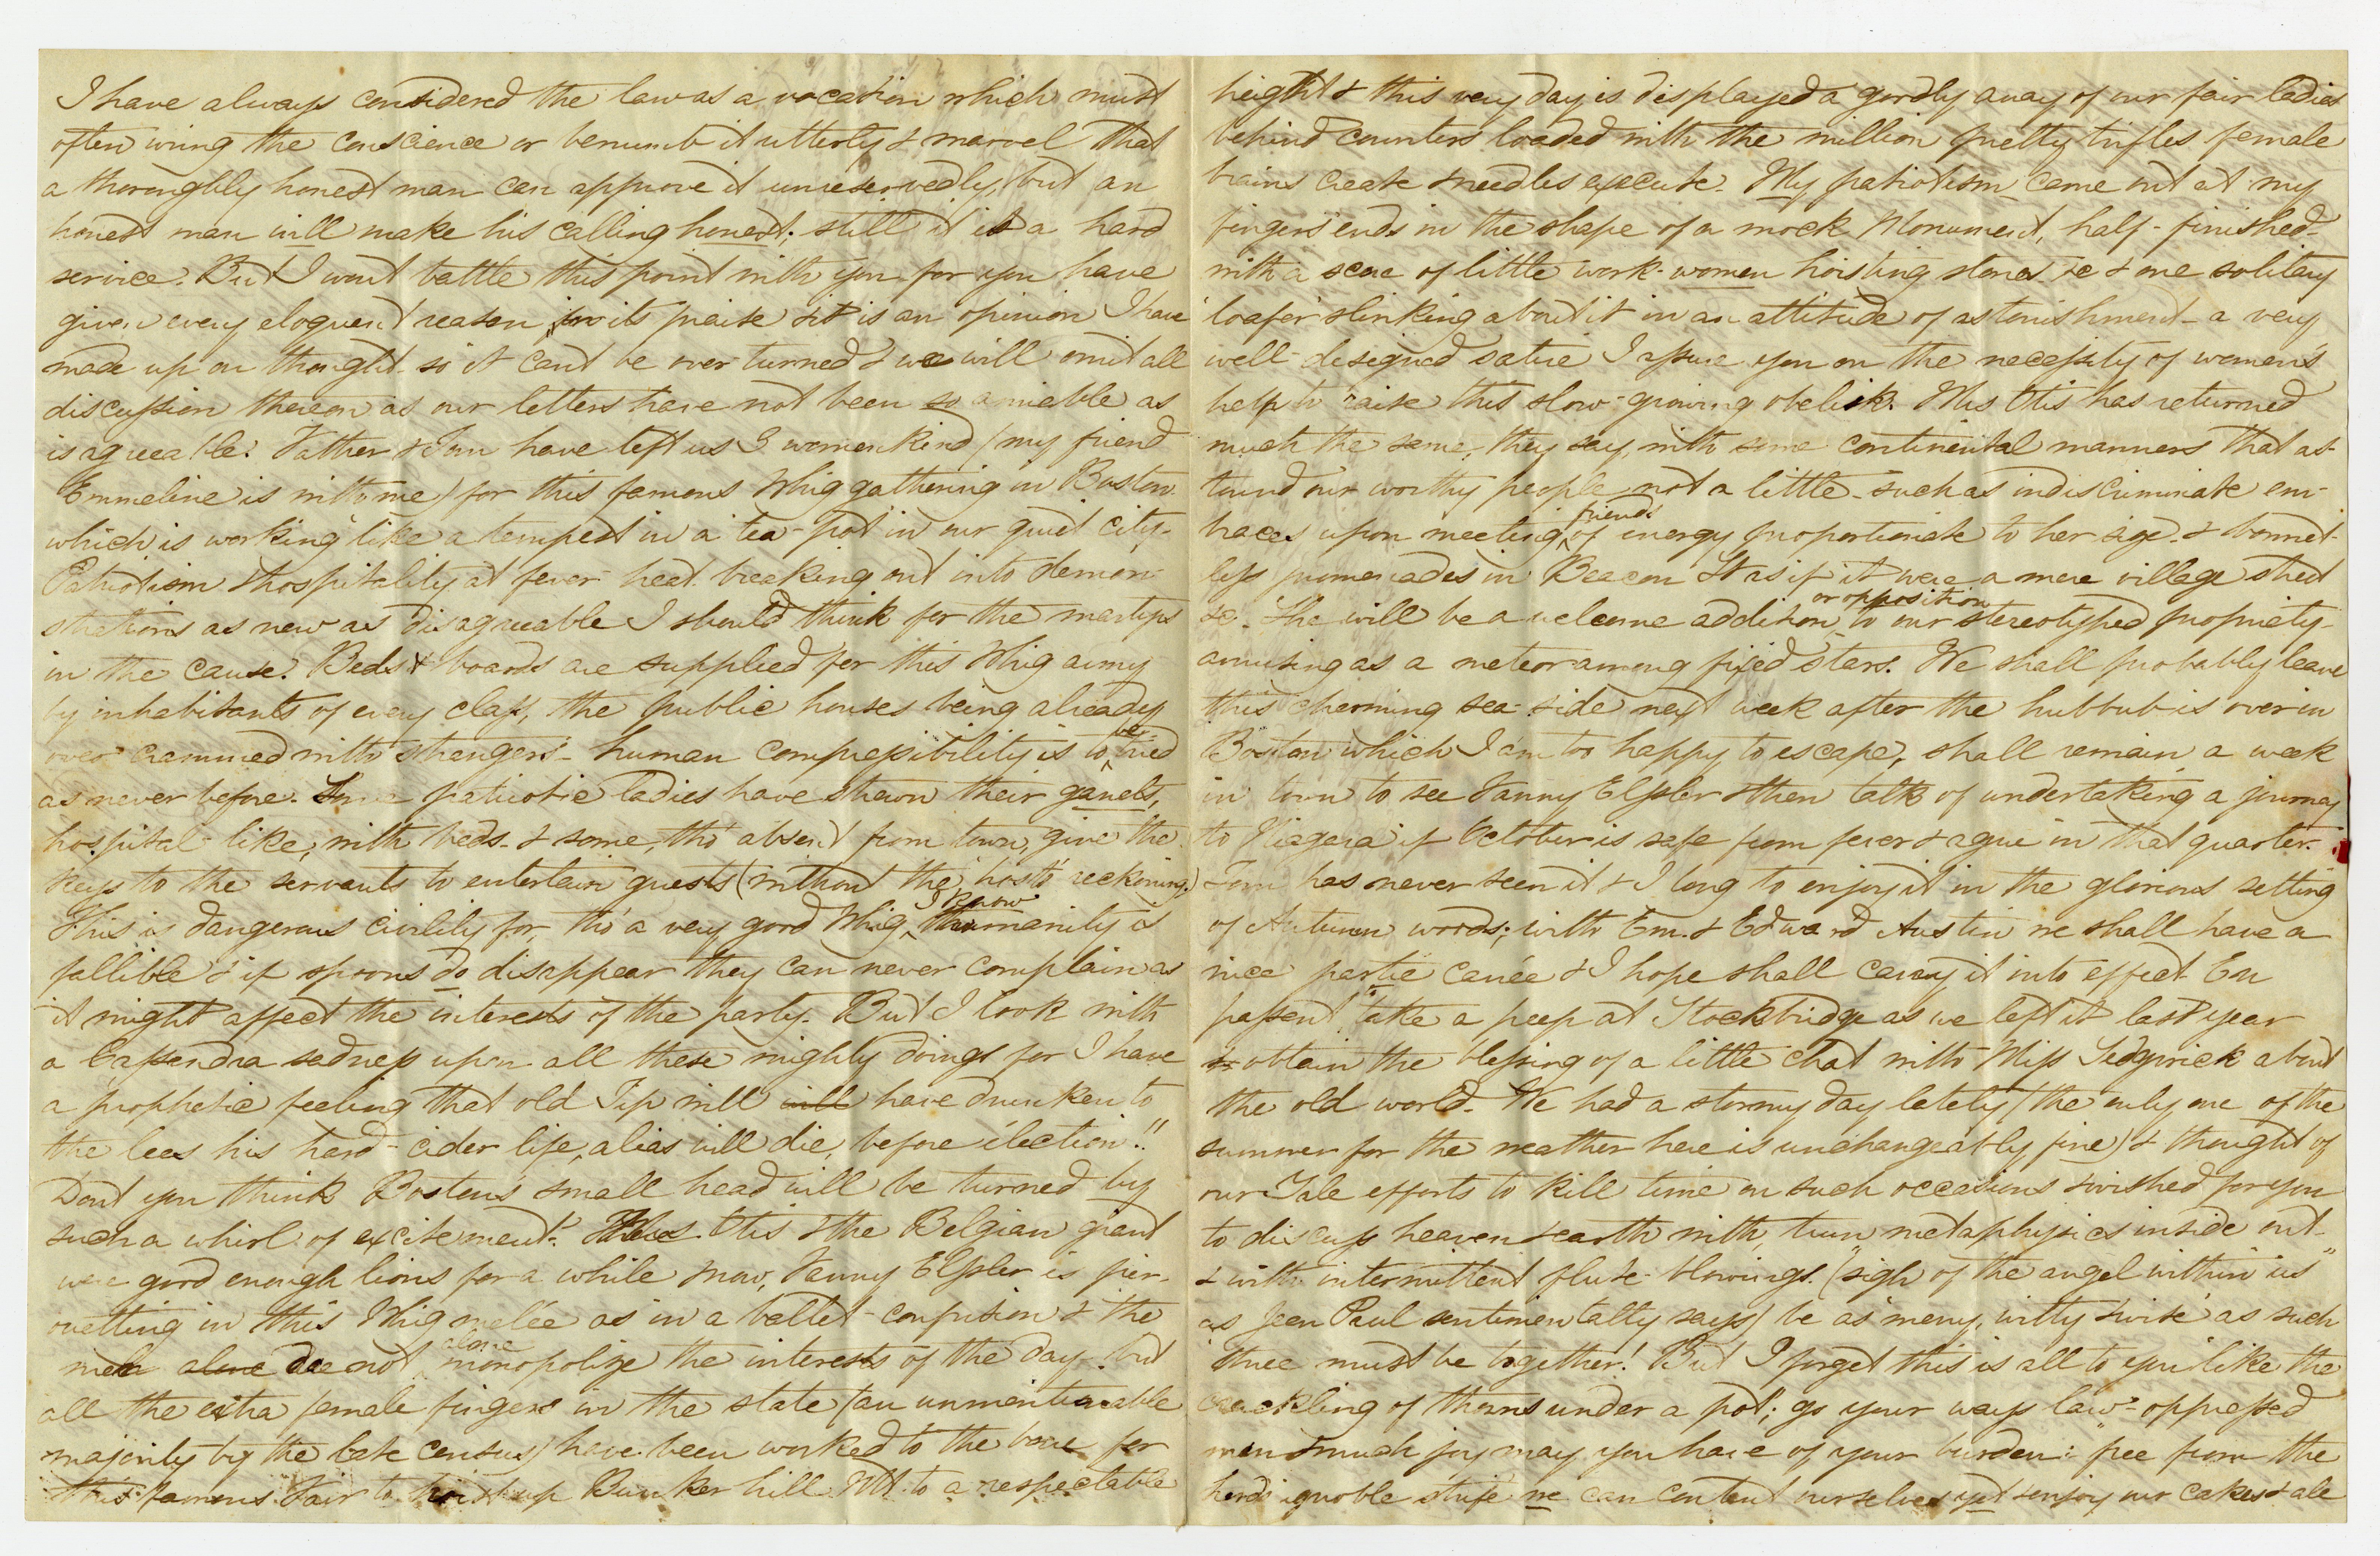 I have always considered the law as a vocation which must
often wring the conscience or benumb it utterly & marvel that
a thoroughly honest man can approve it unreservedly, but an
honest man will make his calling honest; still it is a hard
service. But I wont battle this point with you for you have
given every eloquent reason for its praise & it is an opinion I have
made up on thought so it cant be over turned & we will omit all
discussion thereon as our letters have not been so amiable as
is agreeable. Father & Tom have left us 3 womenkind (my friend
Emmeline is with me) for this famous Whig gathering in Boston
which is working like a tempest in a tea-pot in our quiet city-
Patriotism & hospitality at fever-heat breaking out into demon-
strations as new as disagreeable I should think for the martyrs
in the cause. Beds & boards are supplied for this Whig army
by inhabitants of every class, the public houses being already
over crammed with strangers- human compressibility is to be tried
as never before. Some patriotic ladies have strewn their garrets,
hospital-like, with beds- & some, tho' absent from town, give the
keys to the servants to entertain guests (without the hosts' reckoning)
This is dangerous civility for, tho' a very good Whig, I know humanity is
fallible & if spoons do disappear they can never complain as
it might affect the interests of the party. But I look with
a Cassandra sadness upon all these mighty doings for I have
a prophetic feeling that old Tip will will have drunken to
the lees his hard-cider life, alias will die, before election!!
Dont you think Boston's small head will be turned by
such a whirl of excitement. Mrs Otis & the Belgian giant
were good enough lions for a while now, Fanny Elssler is pir-
ouetting in this Whig melée as in a ballet-confusion & the
men alone do not alone monopolize the interests of the day, but
all the extra female fingers in the state (an unmentionable
majority by the late census) have been worked to the bone for
this famous Fair to hoist up Bunker hill Mt. to a respectable
height & this very day is displayed a goodly array of our fair ladies
behind counters loaded with the million pretty trifles female
brains create & needles execute. My patriotism came out at my
fingers' ends in the shape of a mock Monument, half-finished-
with a score of little work-women hoisting stones &c & one solitary
'loafer' slinking about it in an attitude of astonishment- a very
well-designed satire I assure you on the necessity of women's
help to raise this slow-growing obelisk. Mrs Otis has returned
much the same, they say, with some continental manners that as-
tound our worthy people not a little- such as indiscriminate em-
braces upon meeting friends of energy proportionate to her size- & bonnet-
less promenades in Beacon St as if it were a mere village street
&c. She will be a welcome addition or opposition to our stereotyped propriety-
amusing as a meteor among fixed stars. We shall probably leave
this charming sea-side next week after the hubbub is over in
Boston which I am too happy to escape, shall remain a week
in town to see Fanny Elssler & then talk of undertaking a journey
to Niagara if October is safe from fever & ague in that quarter.
Tom has never seen it & I long to enjoy it in the glorious setting
of Autumn woods; with Em. & Edward Austin we shall have a
nice partie carrée & I hope shall carry it into effect. En
passent, take a peep at Stockbridge as we left it last year
& obtain the blessing of a little chat with Miss Sedgwick about
the old world. We had a stormy day lately (the only one of the
summer for the weather here is unchangeably fine) & thought of
our Yale efforts to kill time on such occasions & wished for you
to discuss heaven & earth with, turn metaphysics inside out-
& with intermittent flute-blowings ("sigh of the angel within us"
as Jean Paul sentimentally says) be as 'merry, witty & wise' as such
three must be together! But I forget this is all to you 'like the
crackling of thorns under a pot'; go your ways law-oppressed
man & much joy may you have of your burden: free from the
herd's ignoble strife we can content ourselves yet & enjoy our cakes & ale